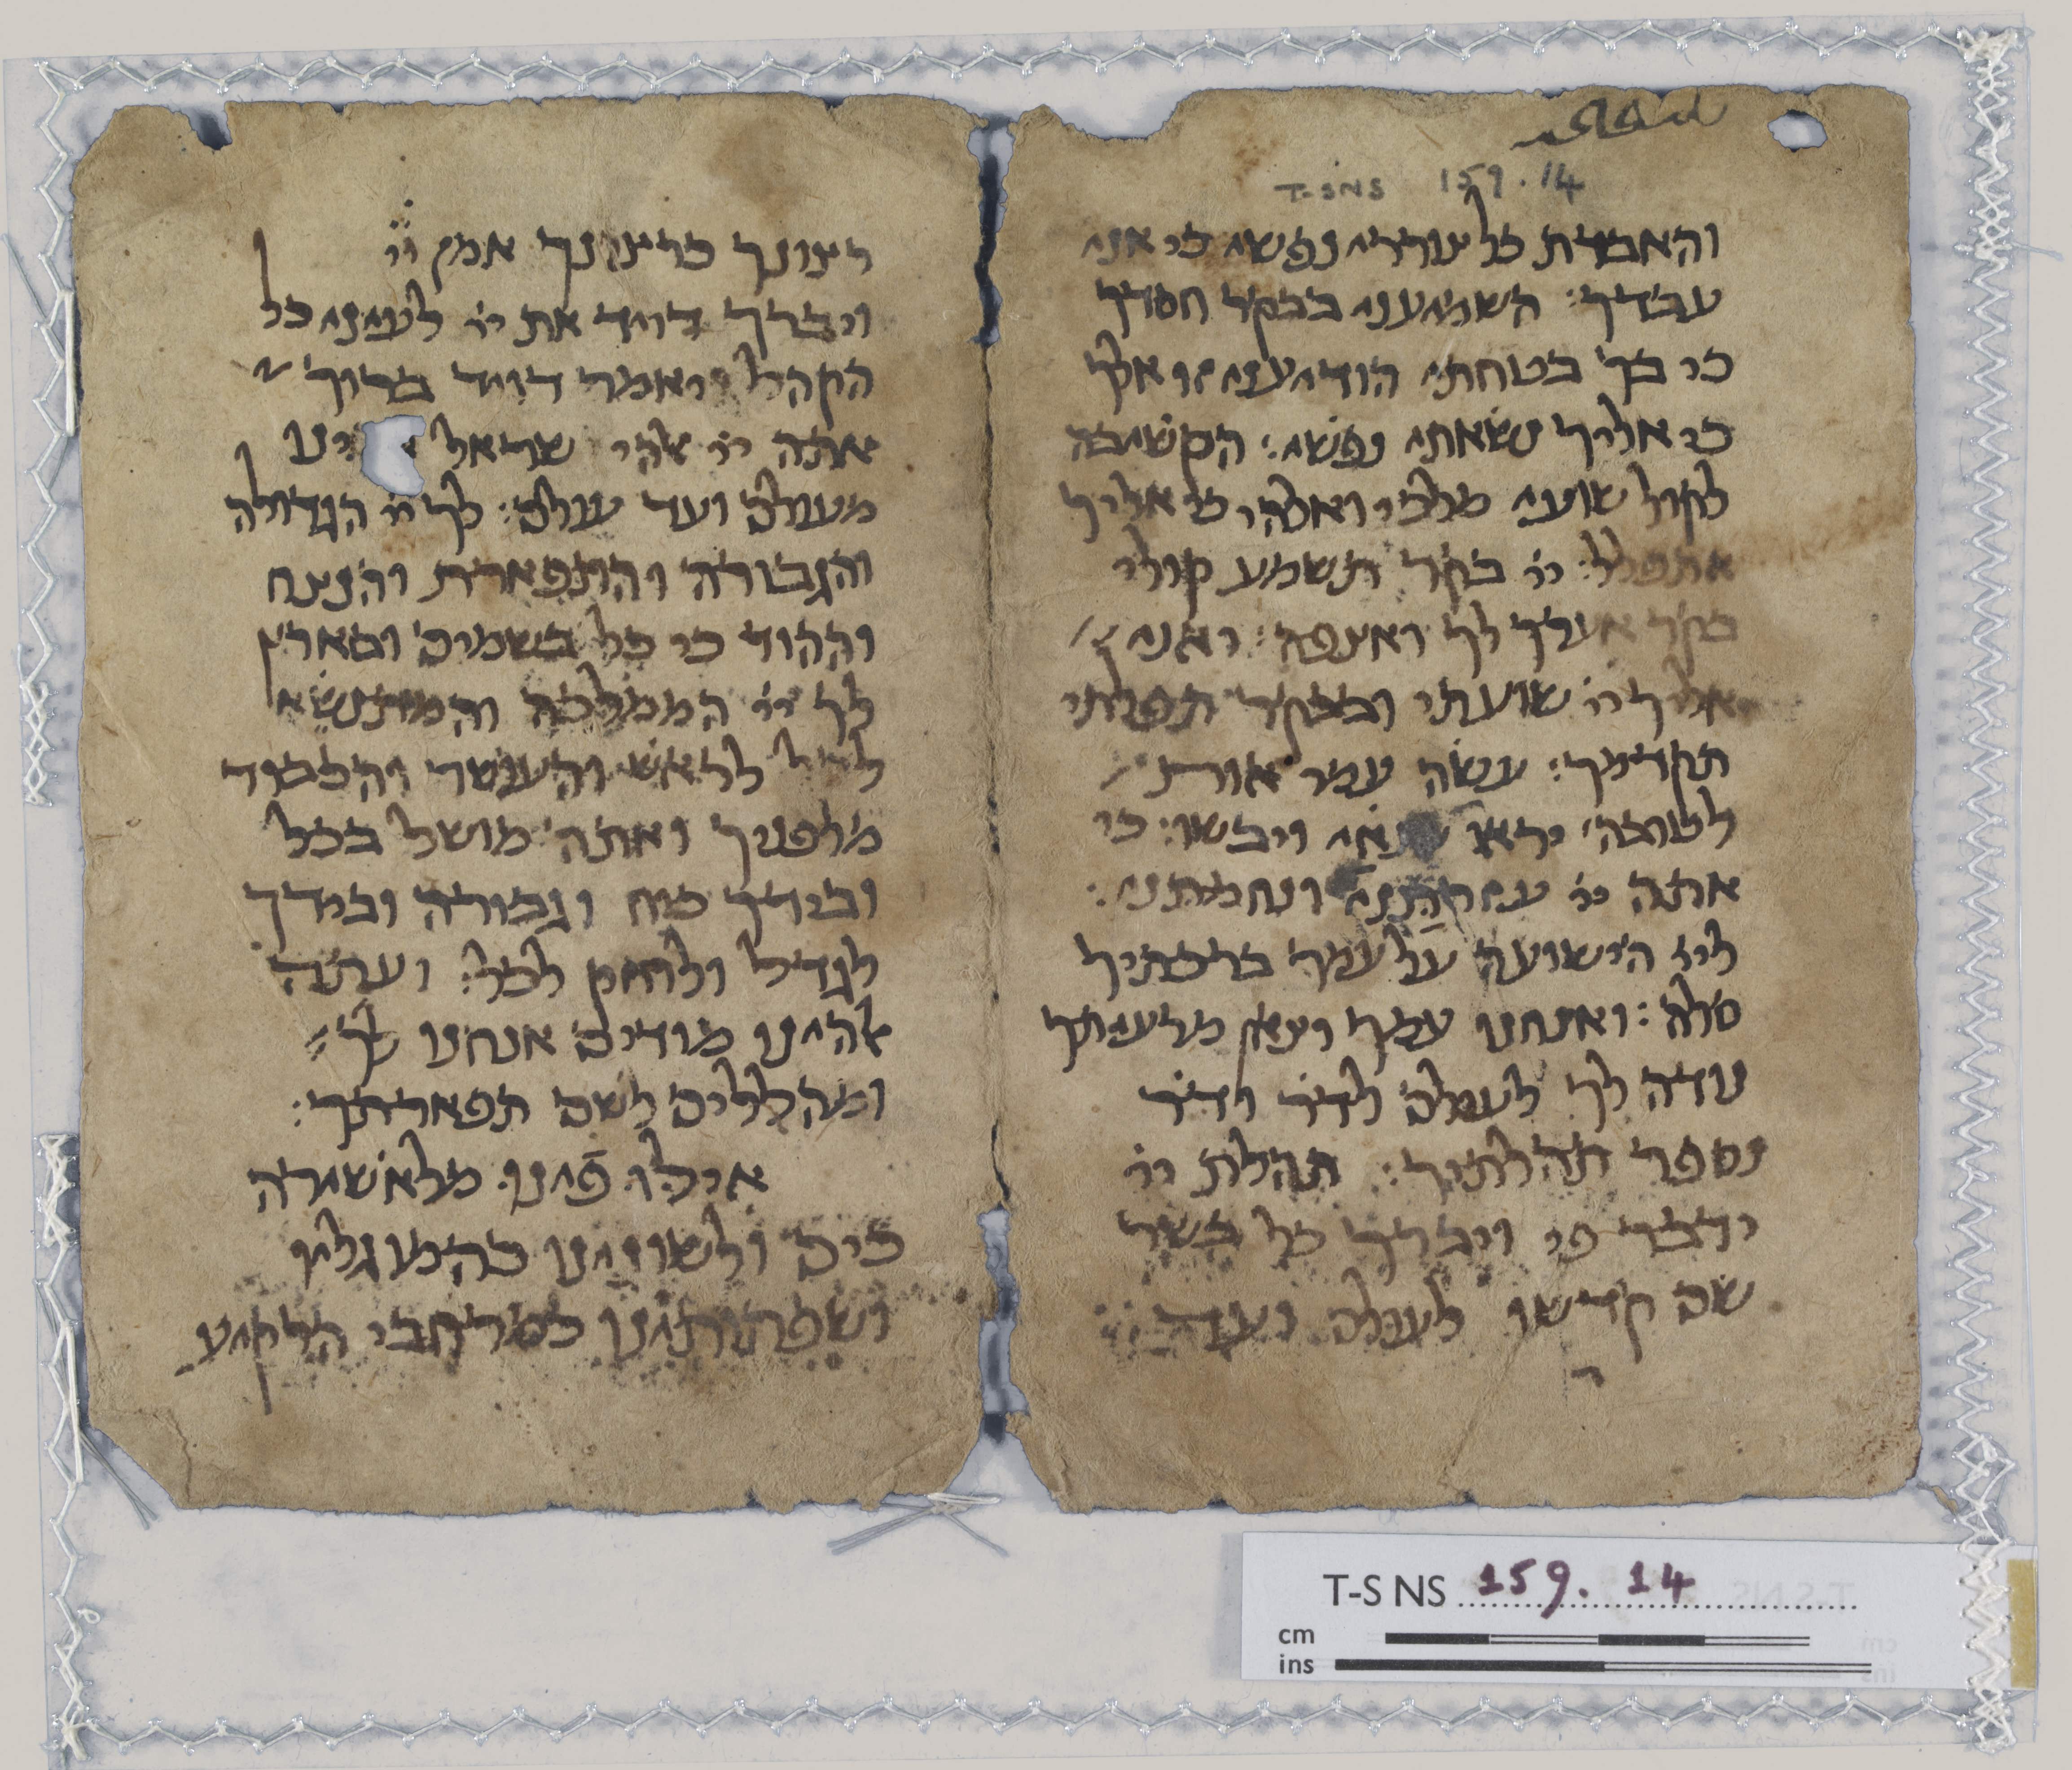 T-S NS 159.14
והאבדת כל צוררי נפשי כי אני
עבדך: השמיעני בבקר חסדך
כי בך בטחתי הודיעני זו אלך
כי אליך נשאתי נפשי: הקשיבה
לקול שועי מלכי ואלהי כי אליך
אתפלל: יי בקר תשמע קולי
בקר אערך לך ואצפה: ואני
אליך יי שועתי ובבקר תפלתי
תקדמך: עשה עמי אות
לטובה יראו שנאי ויבשו: כי
אתה יי עזרתני ונחמתני:
ליי הישועה על עמך ברכתיך
סלה: ואנחנו עמך וצאן מרעיתך
נודה לך לעולם לדור ודור
נספר תהלתיך: תהלת יי
ידבר פי ויברך כל בשר
שם קדשו לעולם ועד
רצונך כרצונך אמן יי
ויברך דויד את יי לעיני כל
הקהל ויאמר דויד ברוך
אתה יי אלהי ישראל ינו
מעולם ועד עולם: לך יי הגדולה
והגבורה והתפארת והנצח
וההוד כי כל בשמים ובארץ
לך יי הממלכה והמתנשא
לכל לראש והעשר והכבוד
מלפניך ואתה מושל בכל
ובידך כוח וגבורה ובידך
לגדל ולחזק לכל: ועתה
אלהינו מודים אנחנו לך
ומהללים לשם תפארתך:
אילו פינו מלא שירה
כים ולשונינו כהמון גליו
ושפתותינו כמרחבי הרקיע
T-S NS 159.14
cm
ins